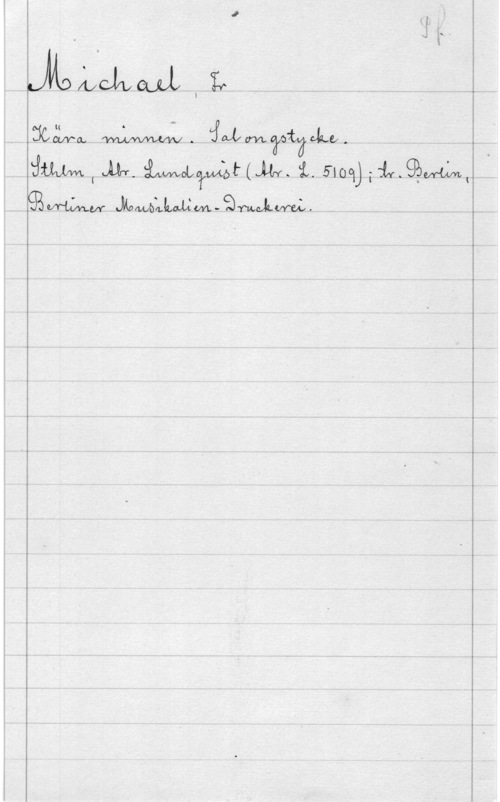 Pf.
Michael, Fr
Kära minnen. Salongstycke.
Sthlm, Abr. Lundquist (Abr. L. 5109); tr. Berlin,
Berliner Musikalien-Druckerei.